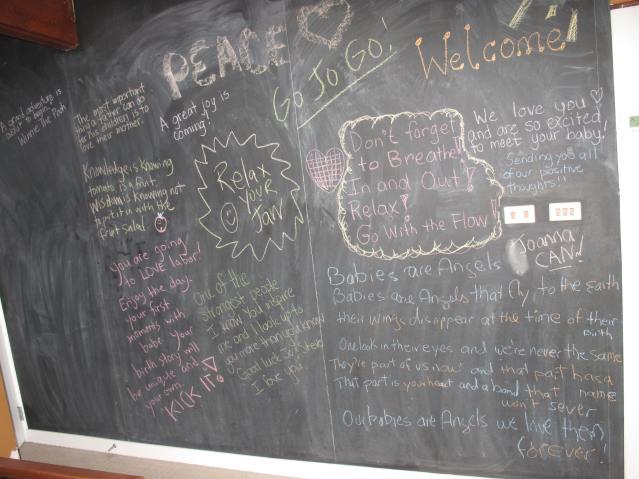 A grand adventure is
about to begin
Winnie The Pooh
The most important
thing a father can do
for his children is to
love their mother.
Knowledge is Knowing
tomato is a fruit.
Wisdom is Knowing not
to put it with the
fruit salad
PEACE
A great joy is
coming!
Go Jo Go!
Welcome!
Relax
your
Jaw
Don't forget
to Breathe!
In and Out!
Relax!
Go With the Flow!
We love you
and are so excited
to meet your baby!
Sending you all
of our positive
thoughts!!
Joanna
CAN!
You are going
to LOVE labor!
Enjoy the day.
your first
moments with
babe. Your
birth story will
be unique and
your own.
KICK IT!
One of the
strongest people
I know. You inspire
me and I look up to
you more than you know
Good luck Sis
I love you
Babies are Angels
Babies are Angels that fly to the earth
their wings disappear at the time of their
birth
One look in their eyes and we're never the same
They're part of us now and that part has a
name
That part is your heart and a bond that
won't sever
Our babies are Angels we love them
forever!